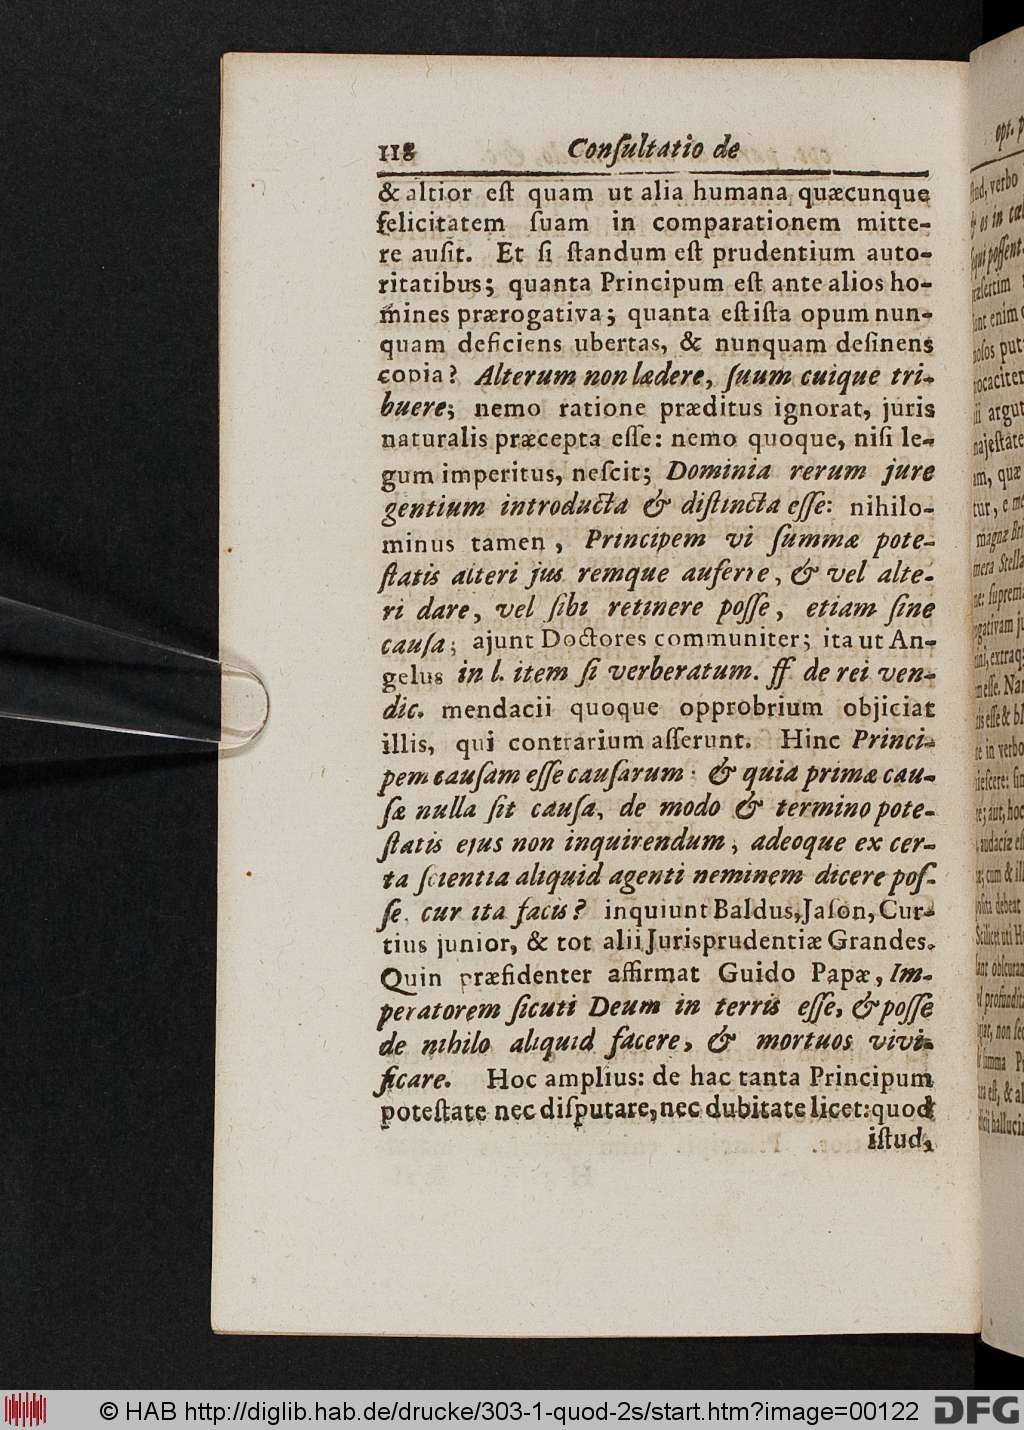 118 Conſultatio de
& altior eſt quam ut alia humana quæcunque
felicitatem ſuam in comparationem mitte-
re auſit. Et ſi ſtandum eſt prudentium auto-
ritatibus; quanta Principum eſt ante alios ho-
mines prærogativa; quanta eſt iſta opum nun-
quam deficiens ubertas, & nunquam deſinens
copia? Alterum non lædere, ſuum cuique tri-
buere; nemo ratione præditus ignorat, juris
naturalis præcepta eſſe: nemo quoque, niſi le-
gum imperitus, neſcit; Dominia rerum jure
gentium introducta & diſtincta eſſe: nihilo-
minus tamen, Principem vi ſummæ pote-
ſtatis alteri jus remque auferre, & vel alte-
ri dare, vel ſibi retinere poſſe, etiam ſine
cauſa; ajunt Doctores communiter; ita ut An-
gelus in l. item ſi verberatum. ff de rei ven-
dic. mendacii quoque opprobrium objiciat
illis, qui contrarium aſſerunt. Hinc Princi-
pem cauſam eſſe cauſarum: & quia primæ cau-
ſæ nulla ſit cauſa, de modo & termino pote-
ſtatis ejus non inquirendum, adeoque ex cer-
ta ſcientia aliquid agenti neminem dicere poſ-
ſe, cur ita facis? inquiunt Baldus, Jaſon, Cur-
tius junior, & tot alii Jurisprudentiæ Grandes.
Quin præfidenter affirmat Guido Papæ, Im-
peratorem ſicuti Deum in terris eſſe, & poſſe
de nihilo aliquid facere, & mortuos vivi-
ficare. Hoc amplius: de hac tanta Principum
poteſtate nec diſputare, nec dubitate licet: quod
iſtud,
opt. p
ſtud, verbo
& os in cæ
ſqui poſſent
præſertim
ſunt enim
noſos put
rocaciter
ii argut
majeſtate
am, quæ
tur, e
magnæ Bri
mera Stella
ne: ſuprema
rogativam
extraq;
eſſe. Nam
eſſe & bl
te in verbo
audaciæ eſ
cum & ill
debeat
Scilicet uti
obſcuran
profundita
non ſec
ſumma Pr
eſt, & al
halluci
© HAB http://diglib.hab.de/drucke/303-1-quod-2s/start.htm?image=00122
DFG